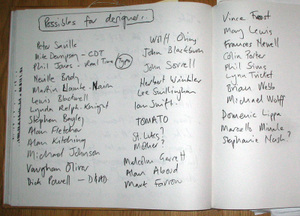 Possibles for designer.
Peter Saville
Mike Dempsey - CDT
Phil Jones - Real Time
Neville Brody
Martin Lambie-Nairn
Lewis Blackwell
Lynda Relph-Knight
Stephen Bayley
Alan Fletcher
Alan Kitching
Michael Johnson
Vaughan Oliver
Dick Powell - D&AD
Wolff Olins
John Blackburn
John Sorrell
Herbert Winkler
Lee Swillingham
Ian Swift
TOMATO
St. Lukes?
Mother?
Malcolm Garrett
Alan Aboud
Mark Farrow
Vince Frost
Mary Lewis
Frances Newell
Colin Porter
Phil Sims
Lynn Trickett
Brian Webb
Michael Wolff
Domenic Lippa
Marcello Minale
Stephanie Nash?